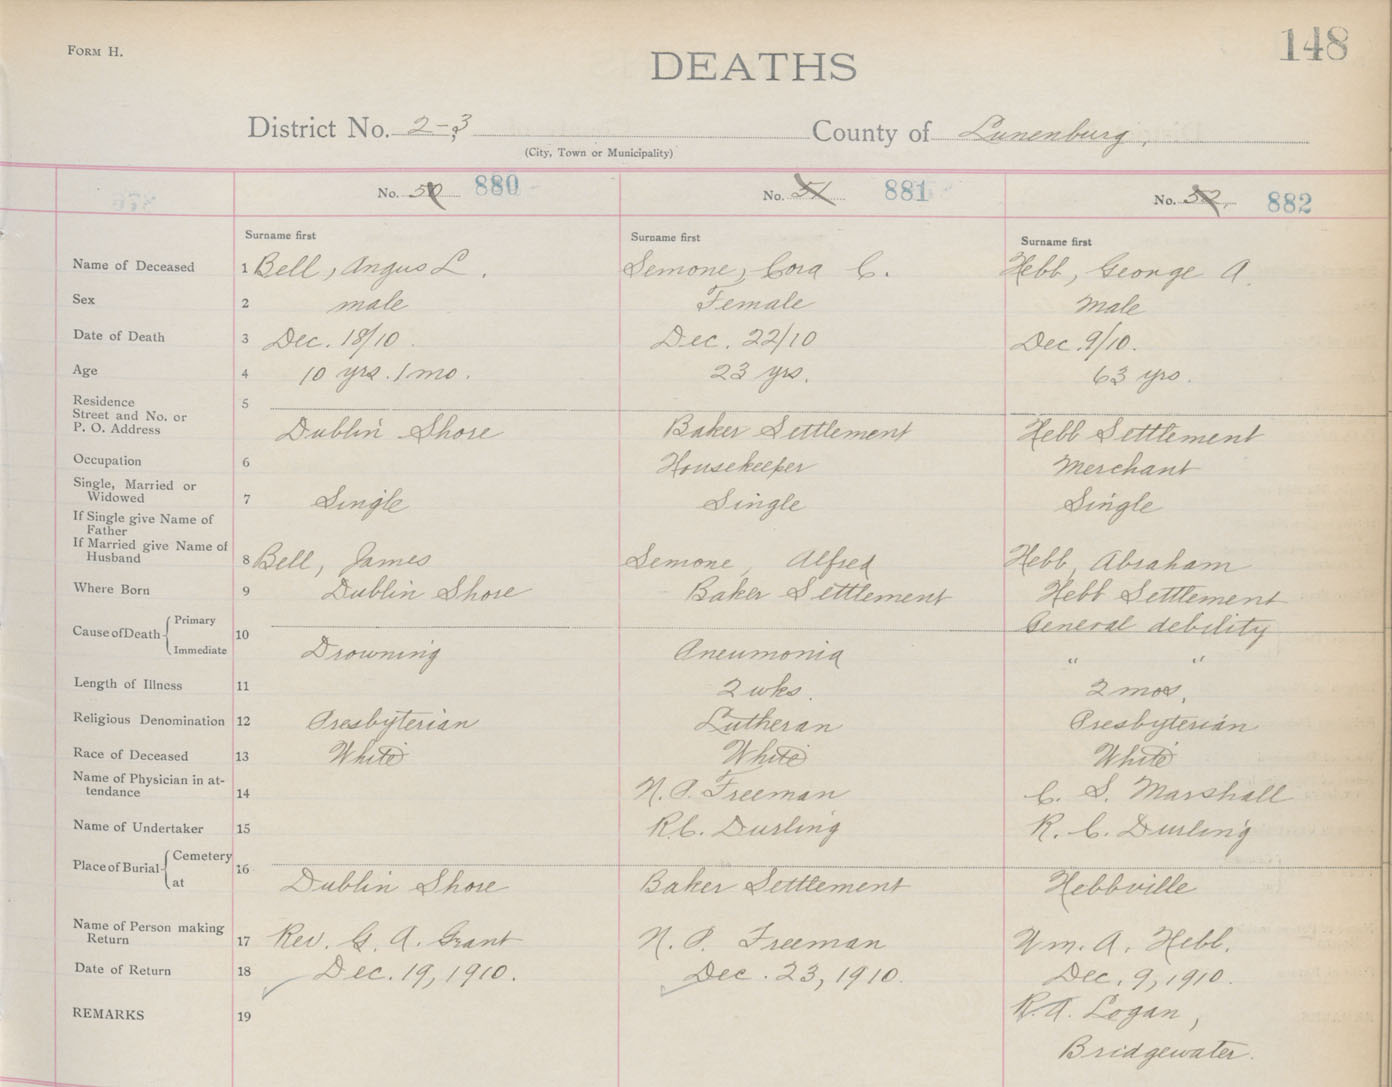 FORM H.
148
DEATHS
District No. 2-3 County of Lunenburg,
(City, Town or Municipality)
No. 50 880 No. 51 881 No. 52, 882
Surname first Surname first Surname first
Name of Deceased 1 Bell, Angus L. Semone, Cora C. Hebb, George A.
Sex 2 male Female male
Date of Death 3 Dec. 18/10. Dec. 22/10 Dec. 9/10.
Age 4 10 yrs. 1 mo. 23 yrs. 63 yrs.
Residence 5
Street and No. or
P. O. Address Dublin Shore Baker Settlement Hebb Settlement
Occupation 6 Housekeeper Merchant
Single, Married or
Widowed 7 Single Single Single
If Single give Name of
Father
If Married give Name of
Husband 8 Bell, James Semone, Alfred Hebb, Abraham
Where Born 9 Dublin Shore Baker Settlement Hebb Settlement
Cause of Death Primary General debility
10
Immediate Drowning Pneumonia " "
Length of Illness 11 2 wks. 2 mos.
Religious Denomination 12 Presbyterian Lutheran Presbyterian
Race of Deceased 13 White White White
Name of Physician in at-
tendance 14 N. P. Freeman C. S. Marshall
Name of Undertaker 15 R.C. Durling R. C. Durling
Place of Burial Cemetery
16
at Dublin Shore Baker Settlement Hebbville
Name of Person making
Return 17 Rev. G. A. Grant N. P. Freeman Wm. A. Hebb.
Date of Return 18 Dec. 19, 1910. Dec. 23, 1910. Dec. 9, 1910.
REMARKS 19 R. A. Logan,
Bridgewater.